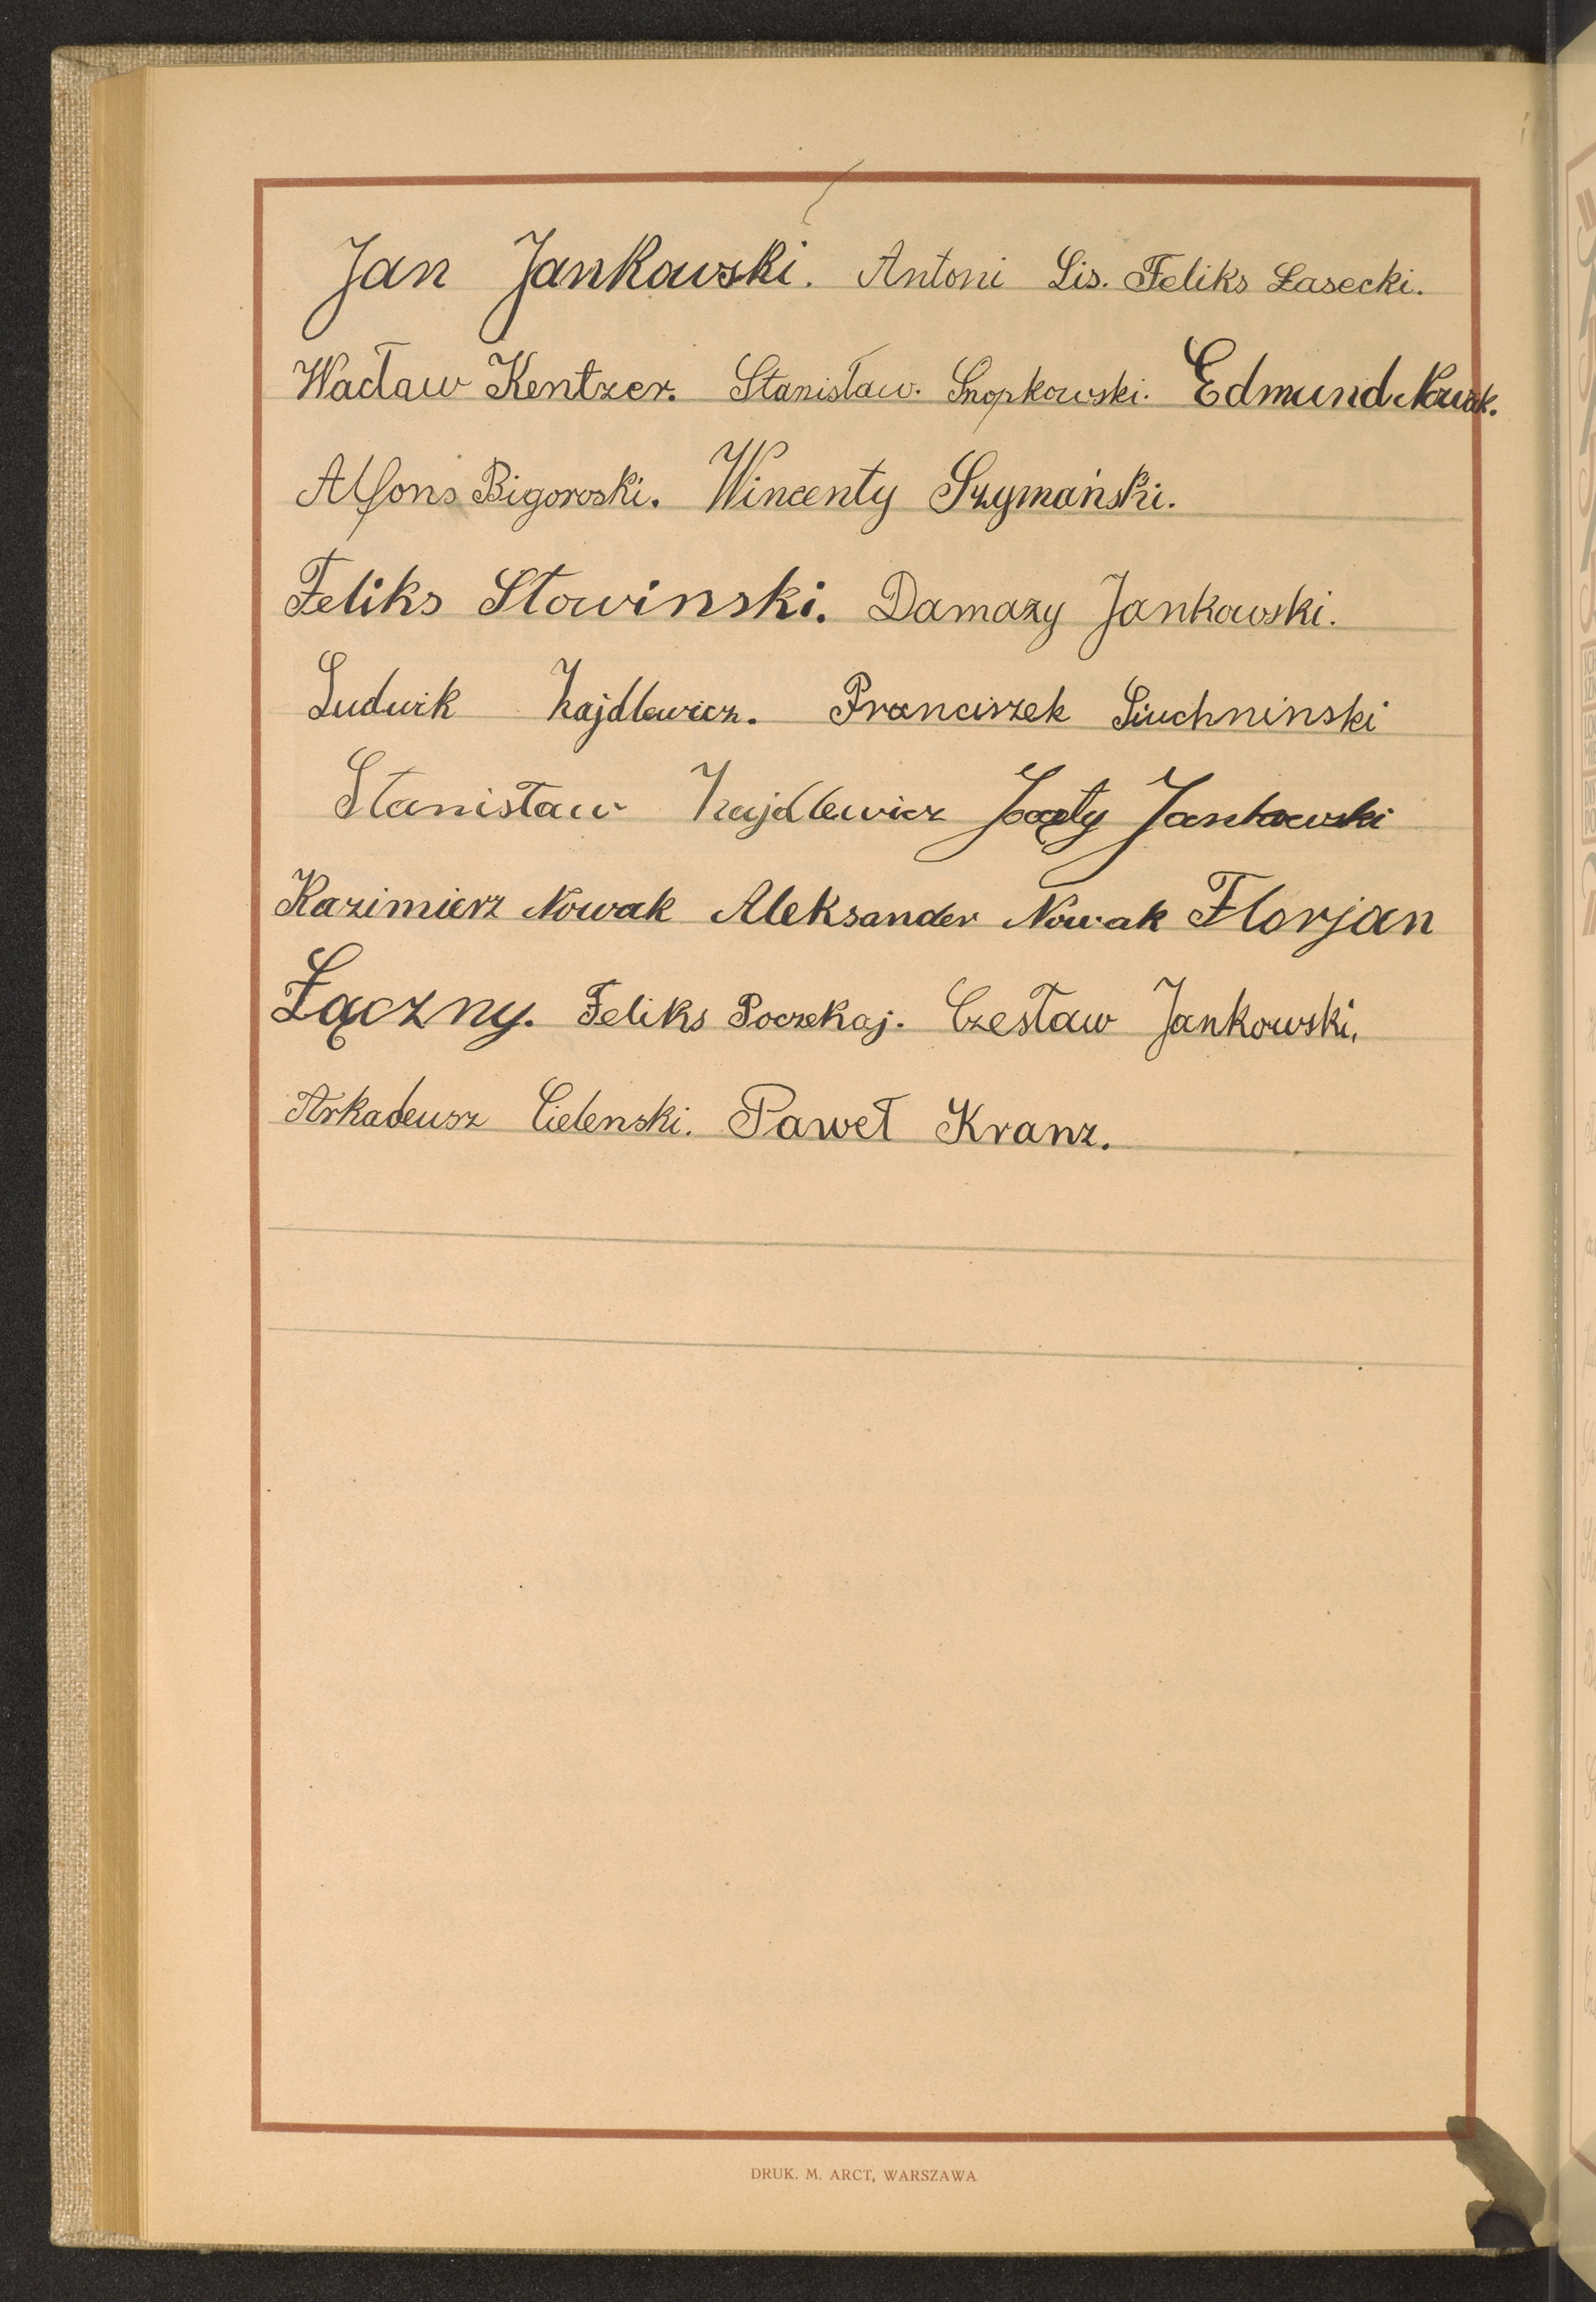 Jan Jankowski. Antoni Lis. Feliks Łasecki.
Wacław Kentzer. Stanisław. Snopkowski. Edmund Nowak.
Alfons Bigoroski. Wincenty Szymański.
Feliks Słowinski. Damazy Jankowski.
Ludwik Kajdlewicz. Franciszek Siuchninski
Stanisław Kajdlewicz Jankowski
Kazimierz Nowak Aleksander Nowak Florjan
Łączny. Feliks Poczekaj. Czesław Jankowski.
Arkadeusz Cielenski. Paweł Kranz.
DRUK. M. ARCT, WARSZAWA